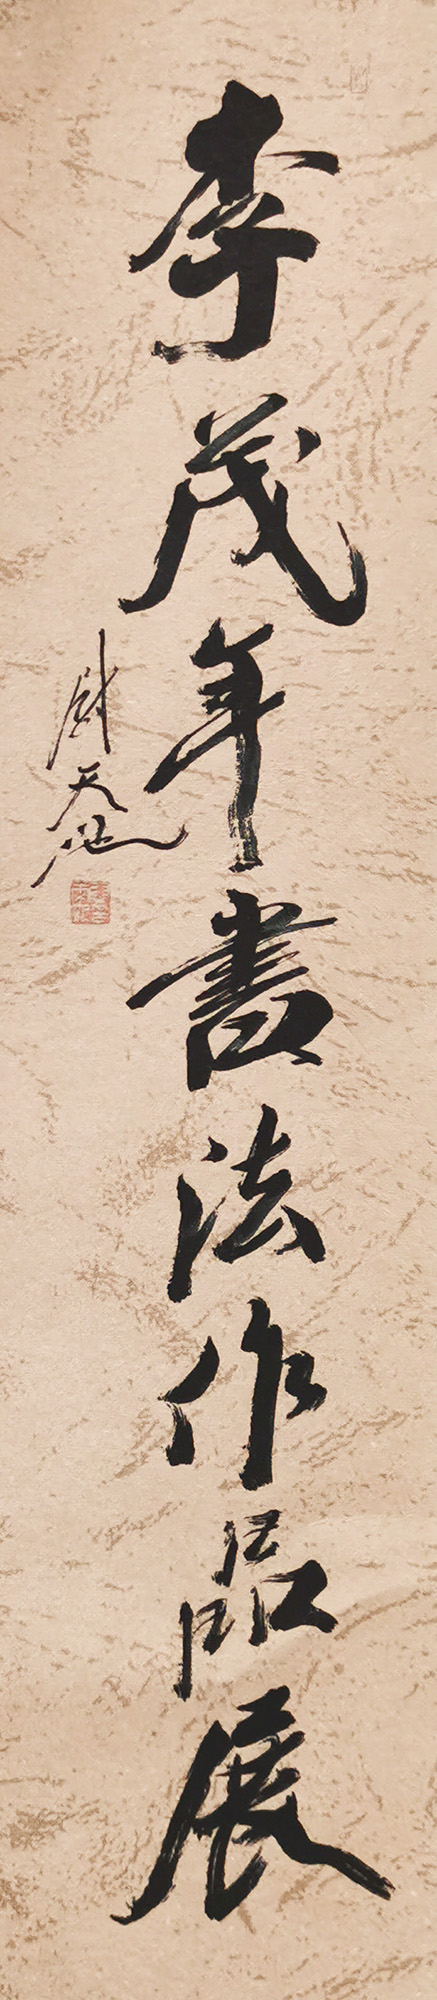 李茂年書法作品展
尉天池